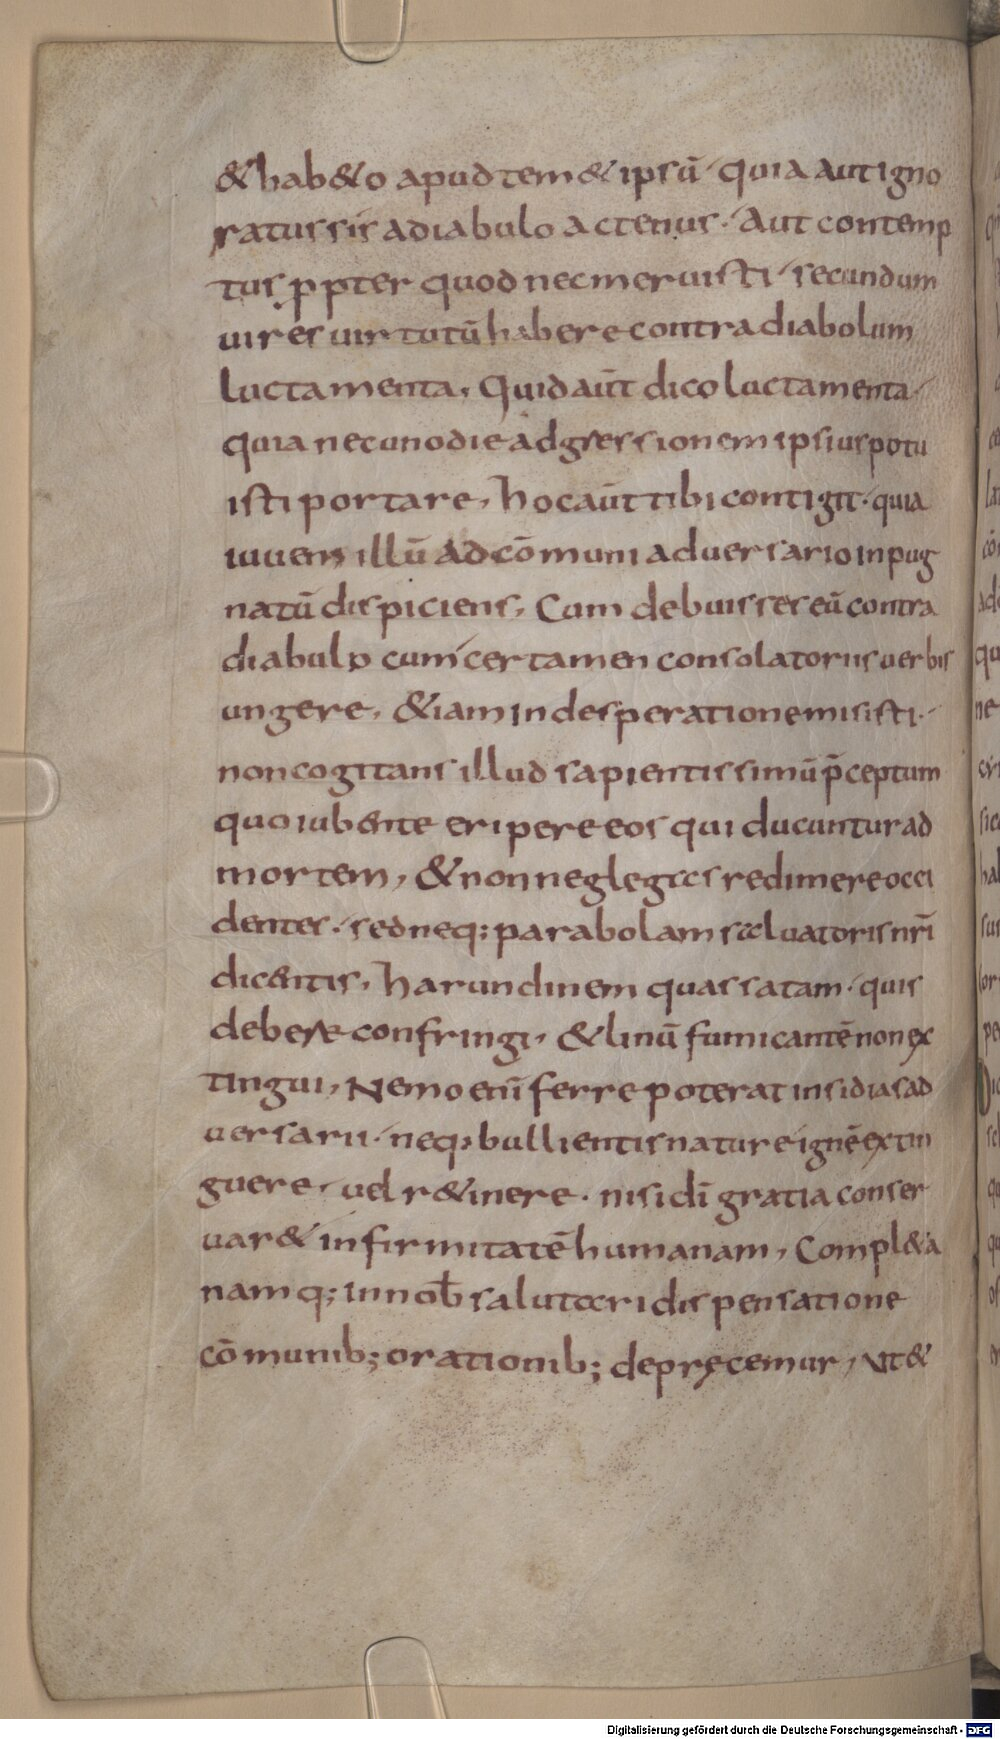 & hab&o apud tem& ipsū. quia aut igno
ratus sis a diabulo actenus. Aut contemp
tus ꝓpter quod nec meruisti. secundum
uires uirtutū habere contra diabolum
luctamenta, Quid aūt dico luctamenta.
quia nec unodie adgressionem ipsius potu
isti portare, hoc aūt tibi contigit. quia
iuuem illū ad cōmuni aduersario inpug
natū dispiciens, Cum debuisses eū contra
diabulo cum certamen consolatoriis uerbis
ungere, &iam in desperatione misisti.
non cogitans illud sapientissimū p̄ceptum
quo iubente eripere eos qui ducuntur ad
mortem, & non neglegas redimere occi
dentes. sed neq; parabolam saluatoris nr̄i
dicentis, harundinem quassatam. quis
debere confringi, & linū fumicantē non ex
tingui, Nemo enī ferre poterat insidias ad
uersarii. neq; bullientis nature ignē extin
guere, uel r&inere. nisi dī gratia conser
uar& infirmitatē humanam, Compl&a
namq; in nob̄ salutari dispensatione
cōmunib; orationib; deprecemur, ut &
Digitalisierung gefördert durch die Deutsche Forschungsgemeinschaft - DFG